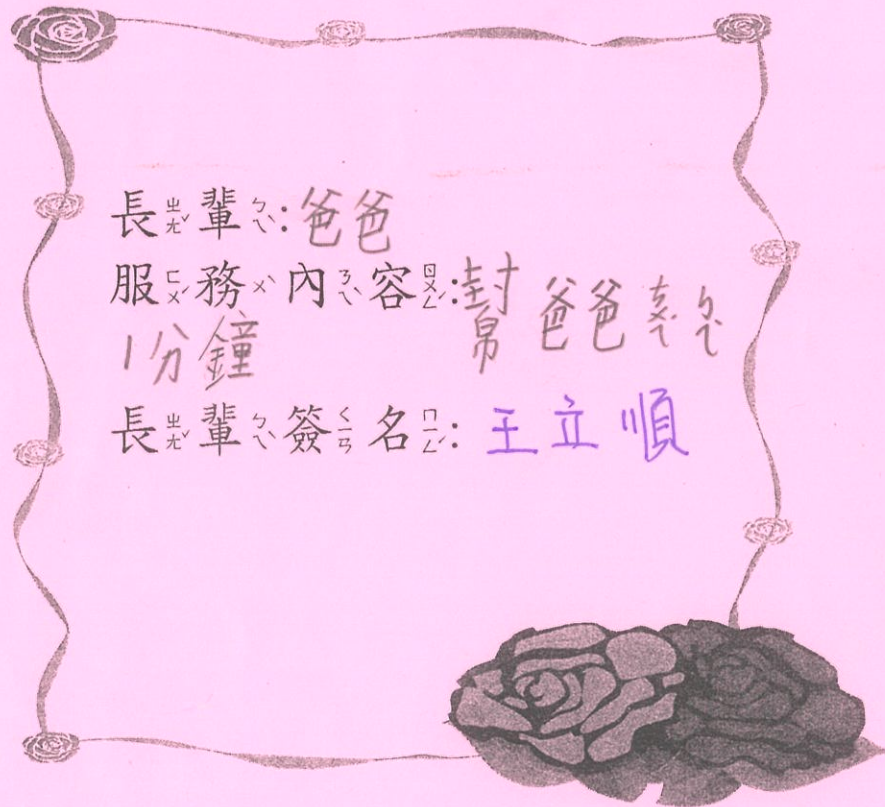 長ㄓㄤˇ輩ㄅㄟˋ:爸爸
服ㄈㄨˊ務ㄨˋ內ㄋㄟˋ容ㄖㄨㄥˊ:幫爸爸ㄔㄨㄟˊㄅㄟˋ
1分鐘
長ㄓㄤˇ輩ㄅㄟˋ簽ㄑㄧㄢ名ㄇㄧㄥˊ:王立順